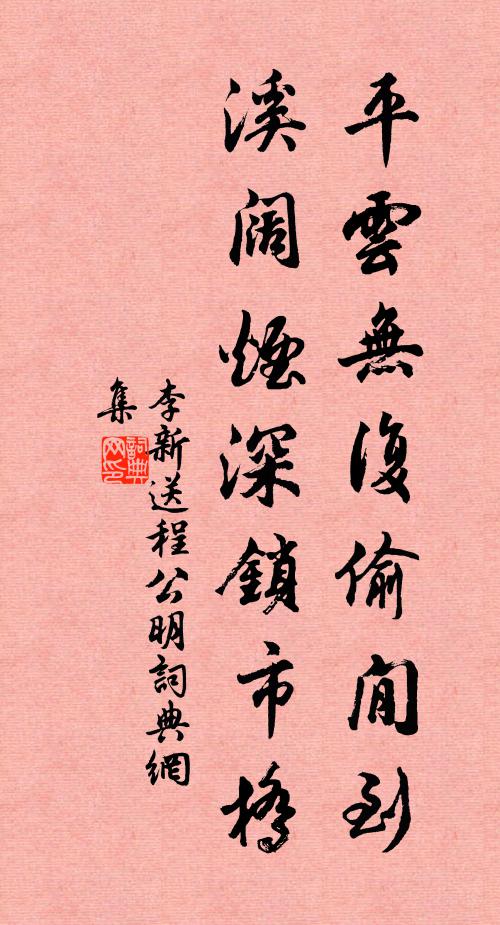 平雲無復偷閒到
溪阔煙深鎖市橋
李新送程公明詞典網
集
詞典网印